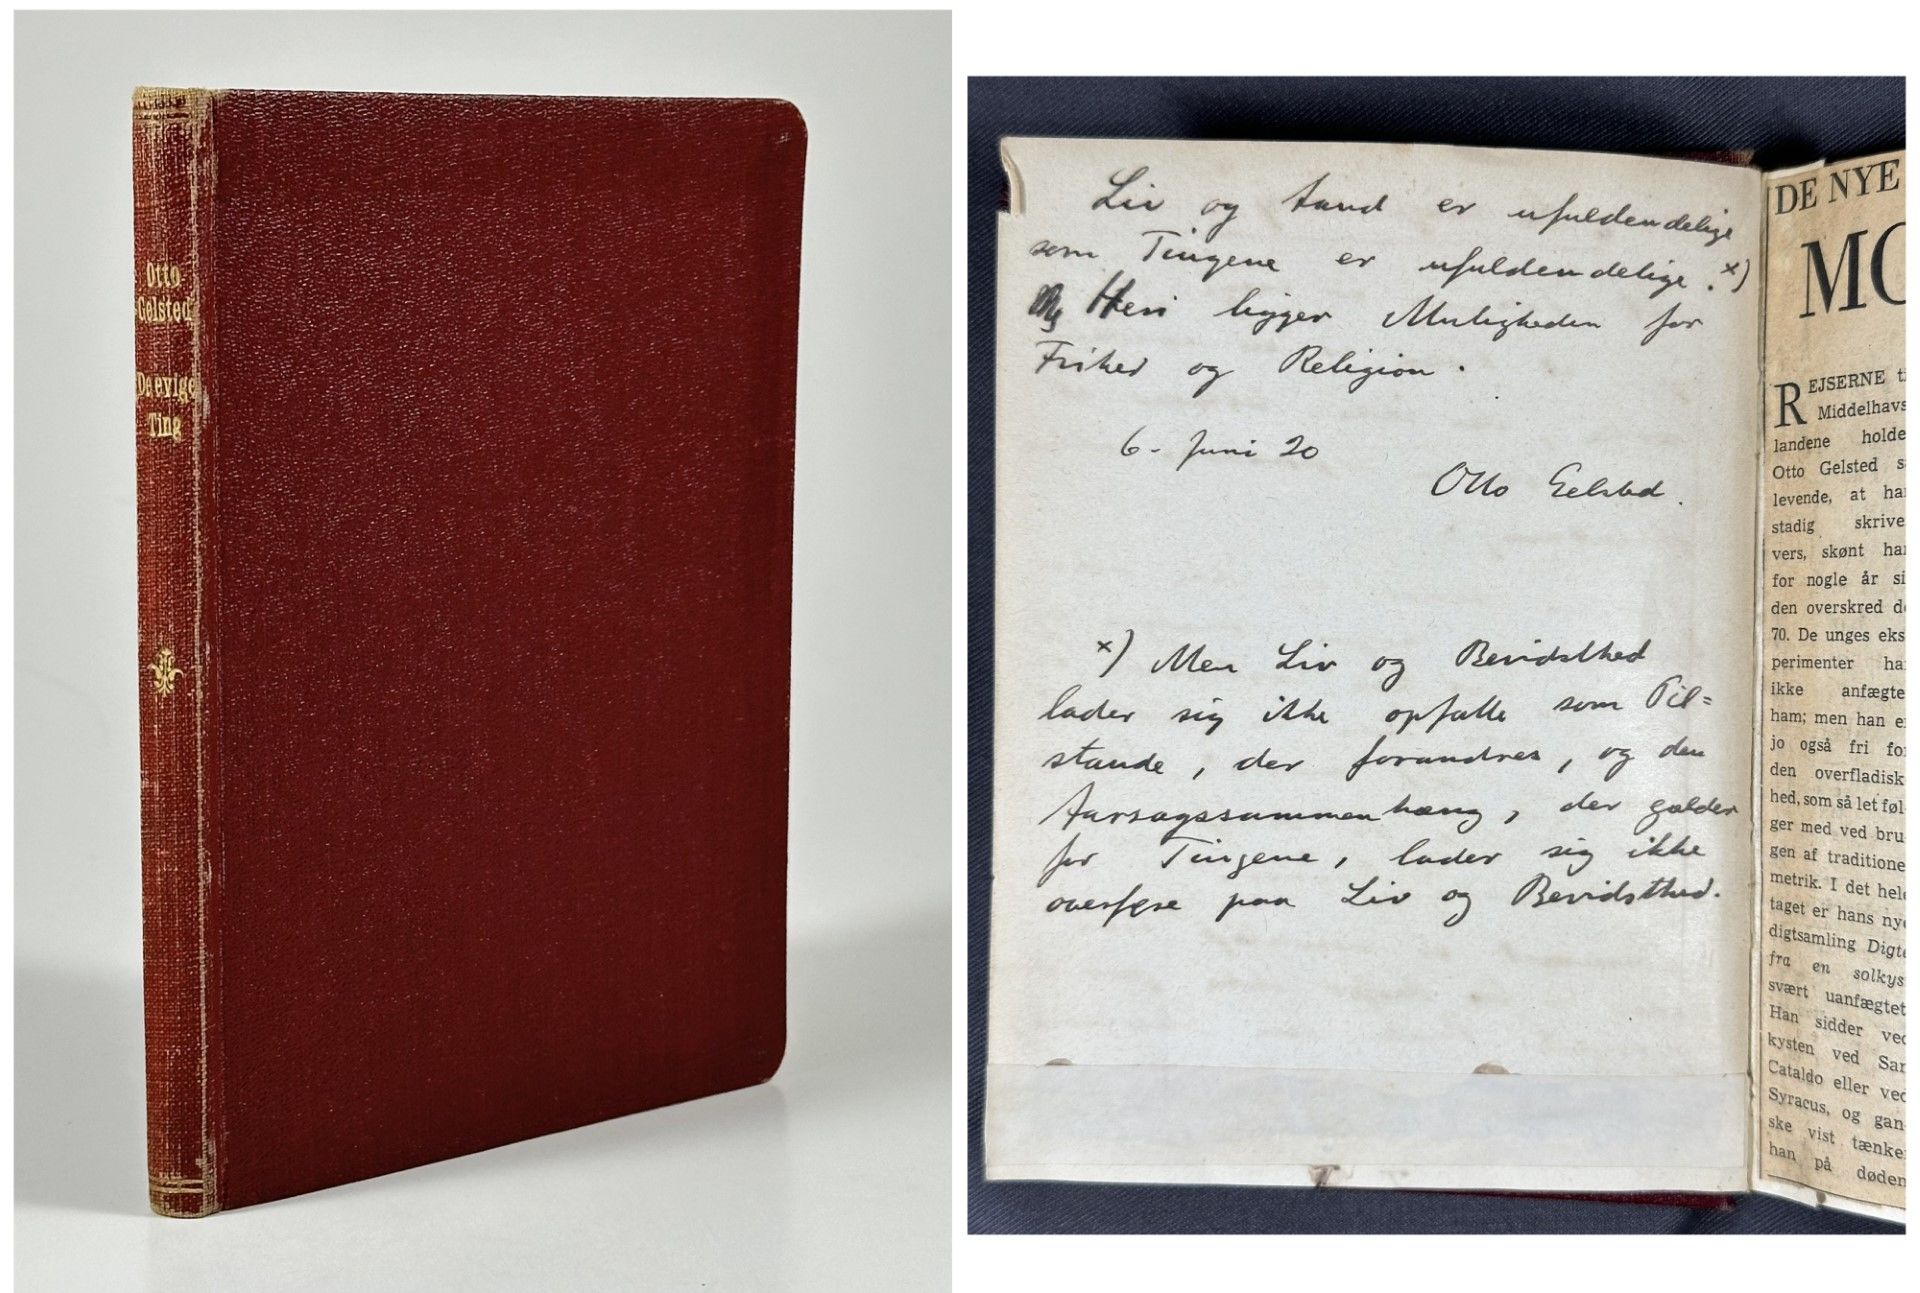 Otto
Gelsted
De evige
Ting
Liv og Aand er ufuldendelige
som Tingene er ufuldendelige. x)
Heri ligger Muligheden for
Frihed og Religion.
6. Juni 20
Otto Gelsted.
x) Men Liv og Bevidsthed
lader sig ikke opfatte som Til=
stande, der forandres, og den
Aarsagssammenhæng, der gælder
for Tingene, lader sig ikke
overføre paa Liv og Bevidsthed.
DE NYE
MO
REJSERNE ti
Middelhavs
landene holde
Otto Gelsted så
levende, at han
stadig skrive
vers, skønt han
for nogle år si
den overskred de
70. De unges eks
perimenter har
ikke anfægte
ham; men han er
jo også fri for
den overfladisk
hed, som så let føl
ger med ved bru
gen af traditione
metrik. I det hele
taget er hans nye
digtsamling Digte
fra en solkyst
svært uanfægtet
Han sidder ved
kysten ved San
Cataldo eller ved
Syracus, og gan
ske vist tænker
han på døden